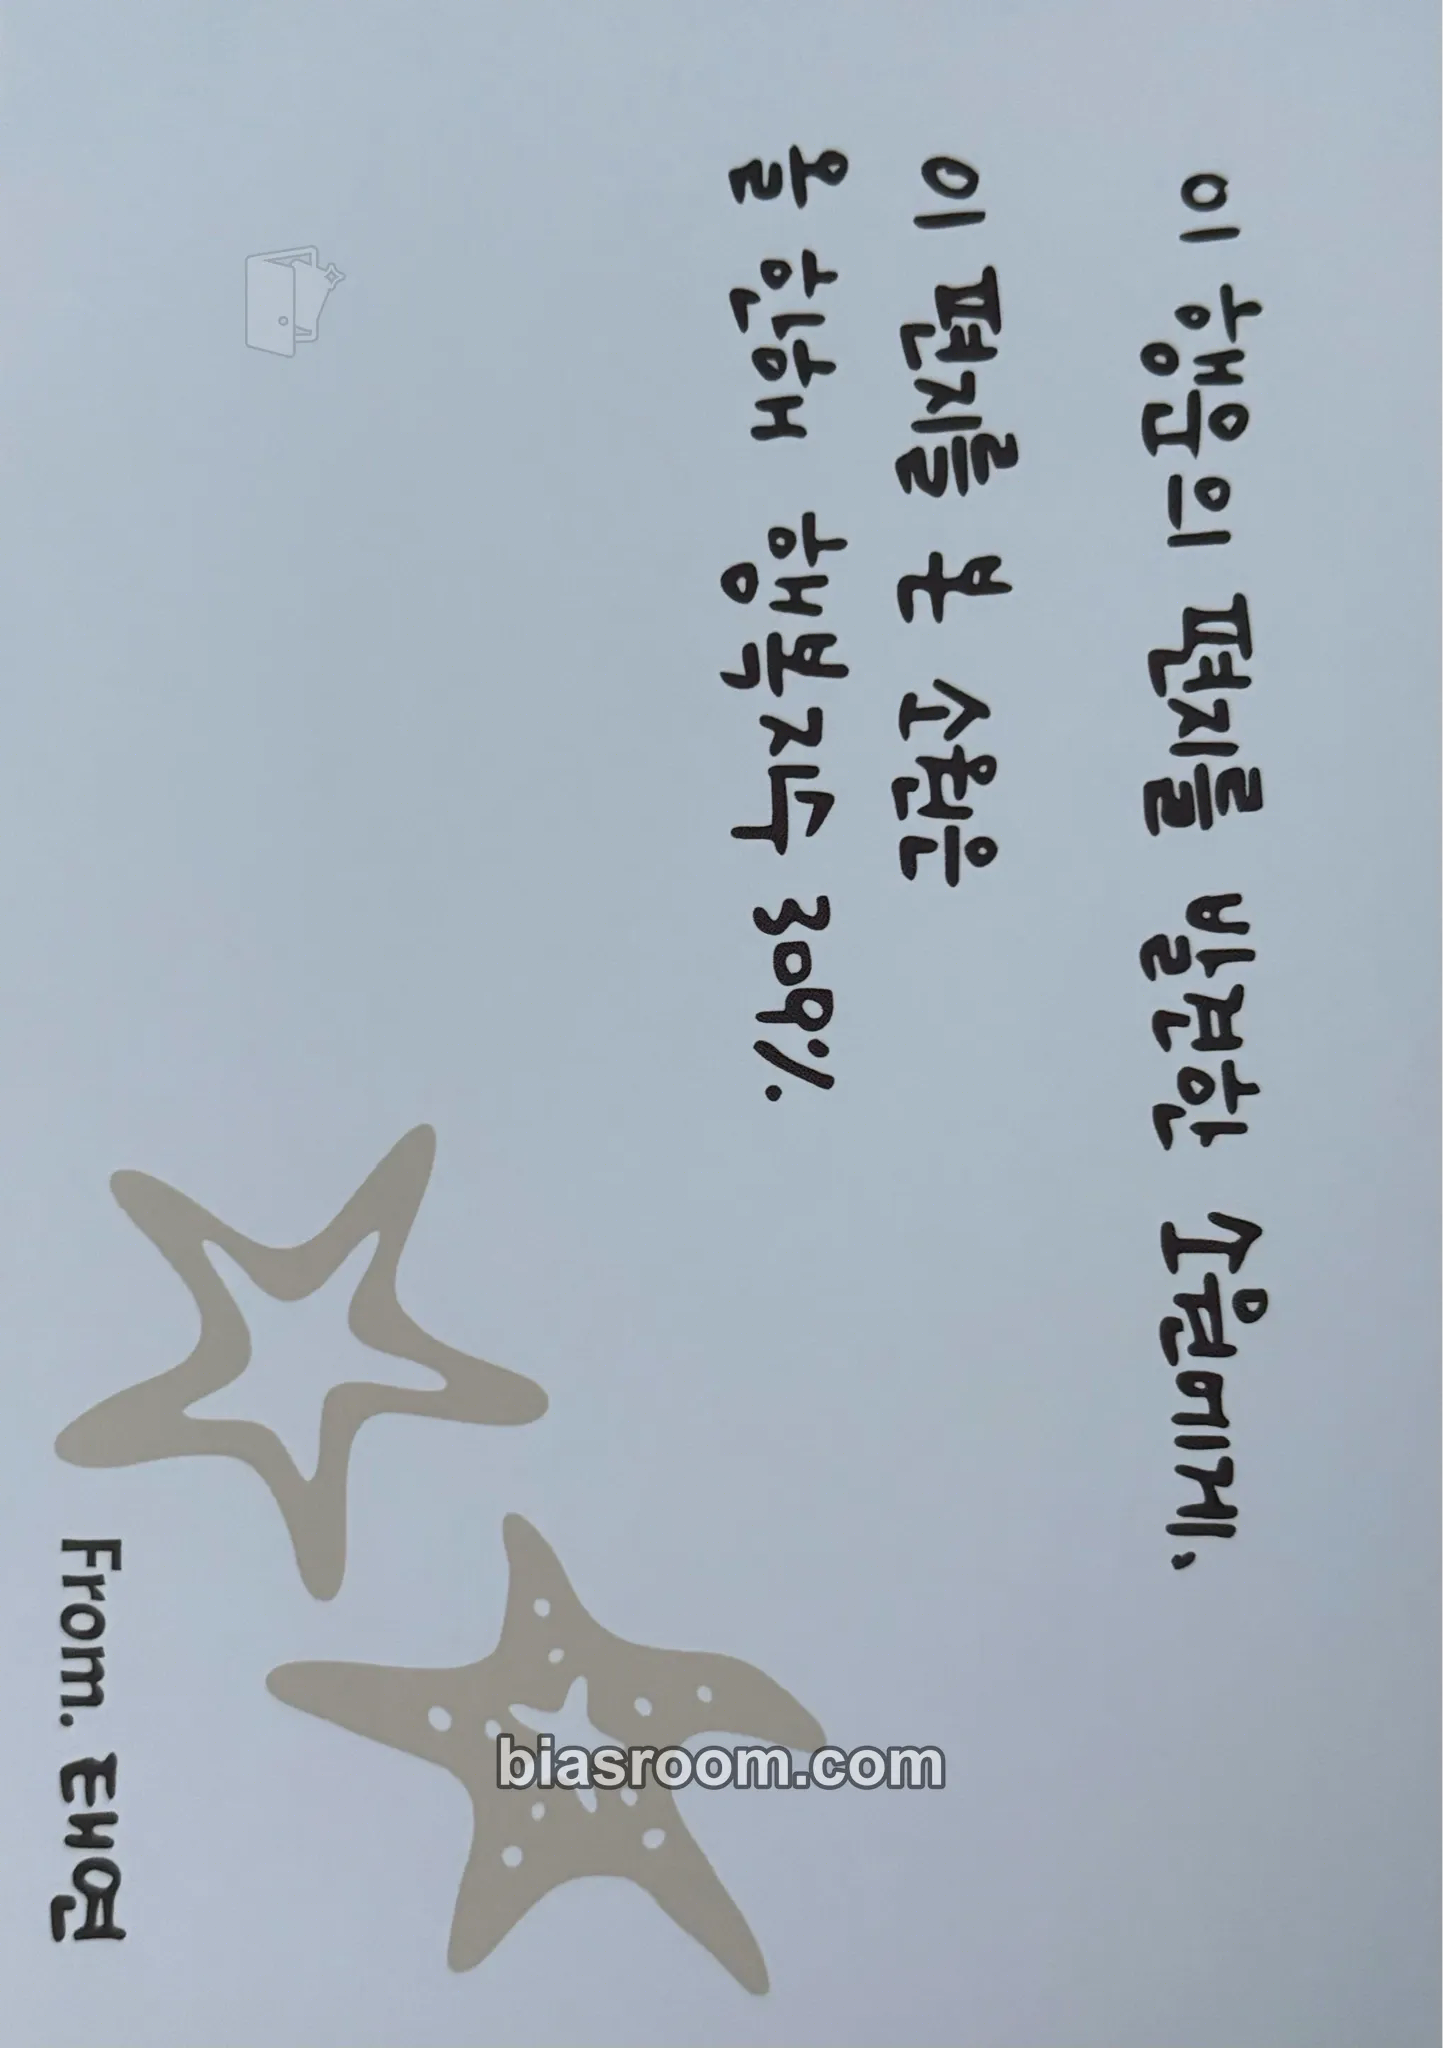 이 행운의 편지를 발견한 소원에게.
이 편지를 본 소원은
올 한해 행복지수 309%.
From. 태연
biasroom.com